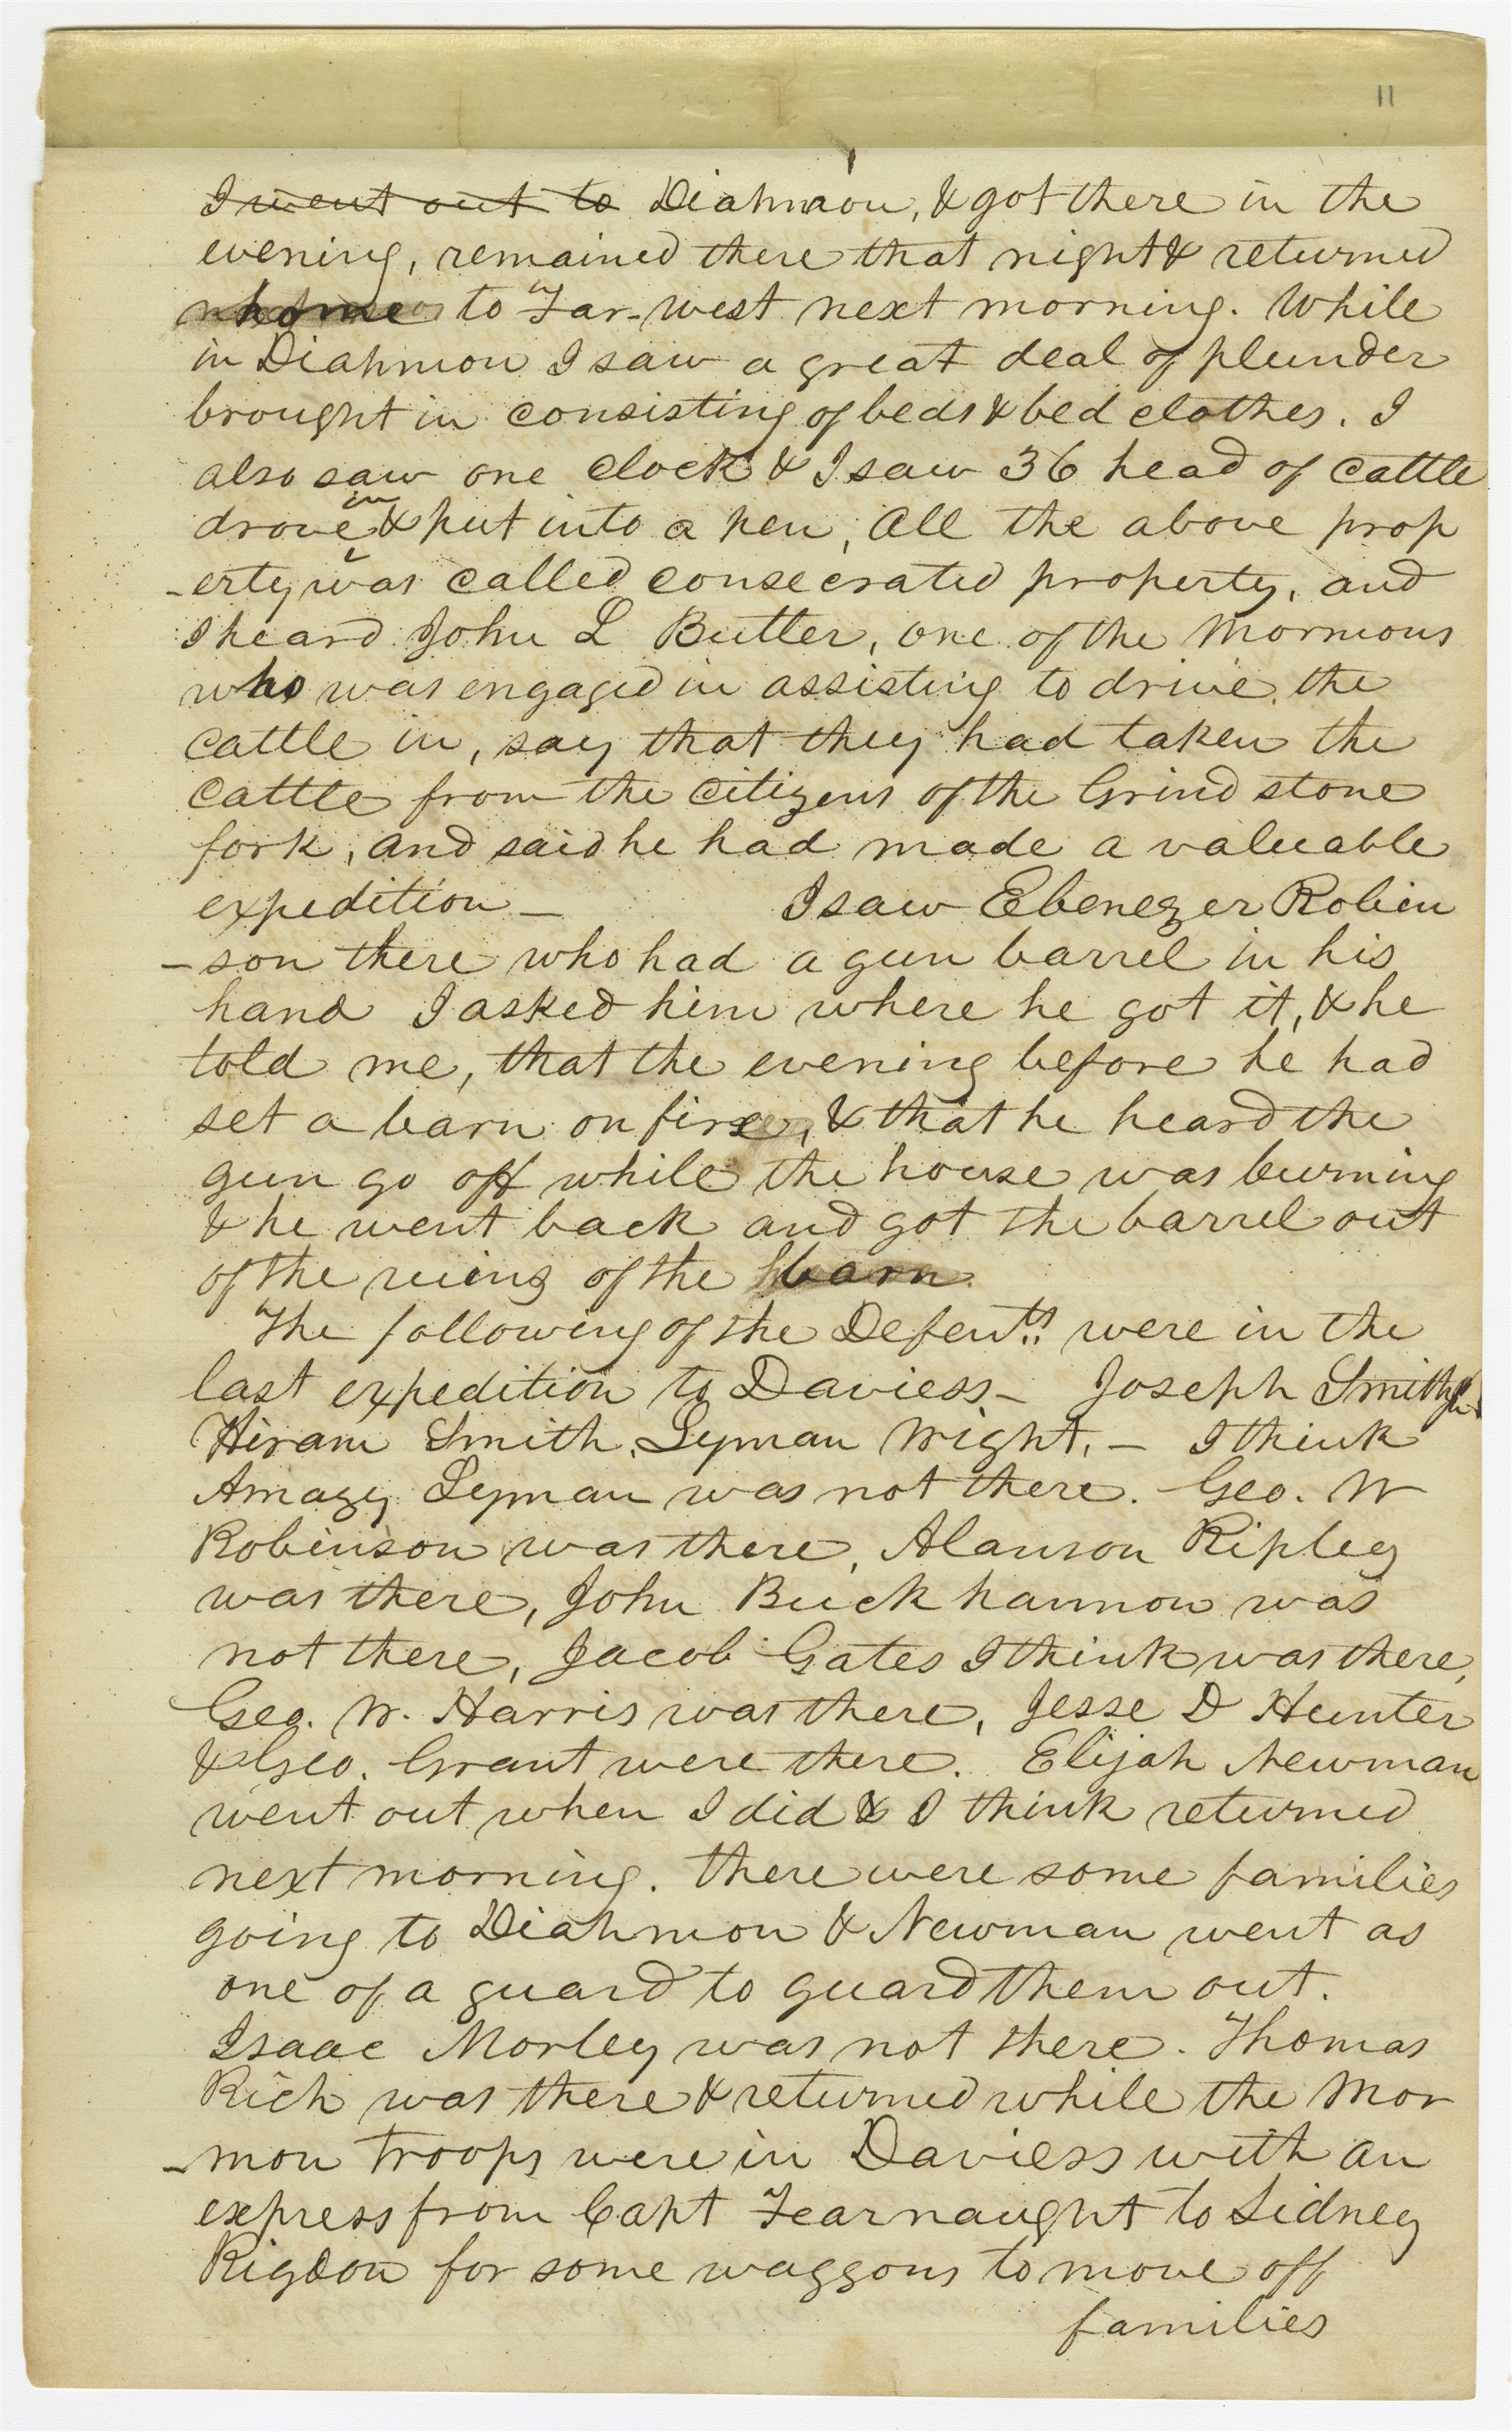 11
I went out to Diahmon, & got there in the
evening, remained there that night & returned
home to Far-west next morning. While
in Diahmon I saw a great deal of plunder
brought in consisting of beds & bed clothes. I
also saw one clock & I saw 36 head of cattle
drove in & put into a pen, All the above prop
-erty was called consecrated property, and
I heard John L Butler, one of the Mormons
who was engaged in assisting to drive the
cattle in, say that they had taken the
cattle from the citizens of the Grind stone
fork, and said he had made a valuable
expedition — I saw Ebenezer Robin
-son there who had a gun barrel in his
hand I asked him where he got it, & he
told me, that the evening before he had
set a barn on fire, & that he heard the
gun go off while the house was burning
& he went back and got the barrel out
of the ruins of the barn.
The following of the Defents. were in the
last expedition to Daviess — Joseph Smith Jr
Hiram Smith, Lyman Wright, — I think
Amazy Lyman was not there. Geo. W
Robinson was there, Alanson Ripley
was there, John Buckhannon was
not there, Jacob Gates I think was there,
Geo. W. Harris was there, Jesse D Hunter
& Geo. Grant were there. Elijah Newman
went out when I did & I think returned
next morning. there were some families
going to Diahmon & Newman went as
one of a guard to guard them out.
Isaac Morley was not there. Thomas
Rich was there & returned while the Mor
-mon troops were in Daviess with an
express from Capt Fearnaught to Sidney
Rigdon for some waggons to move off
families